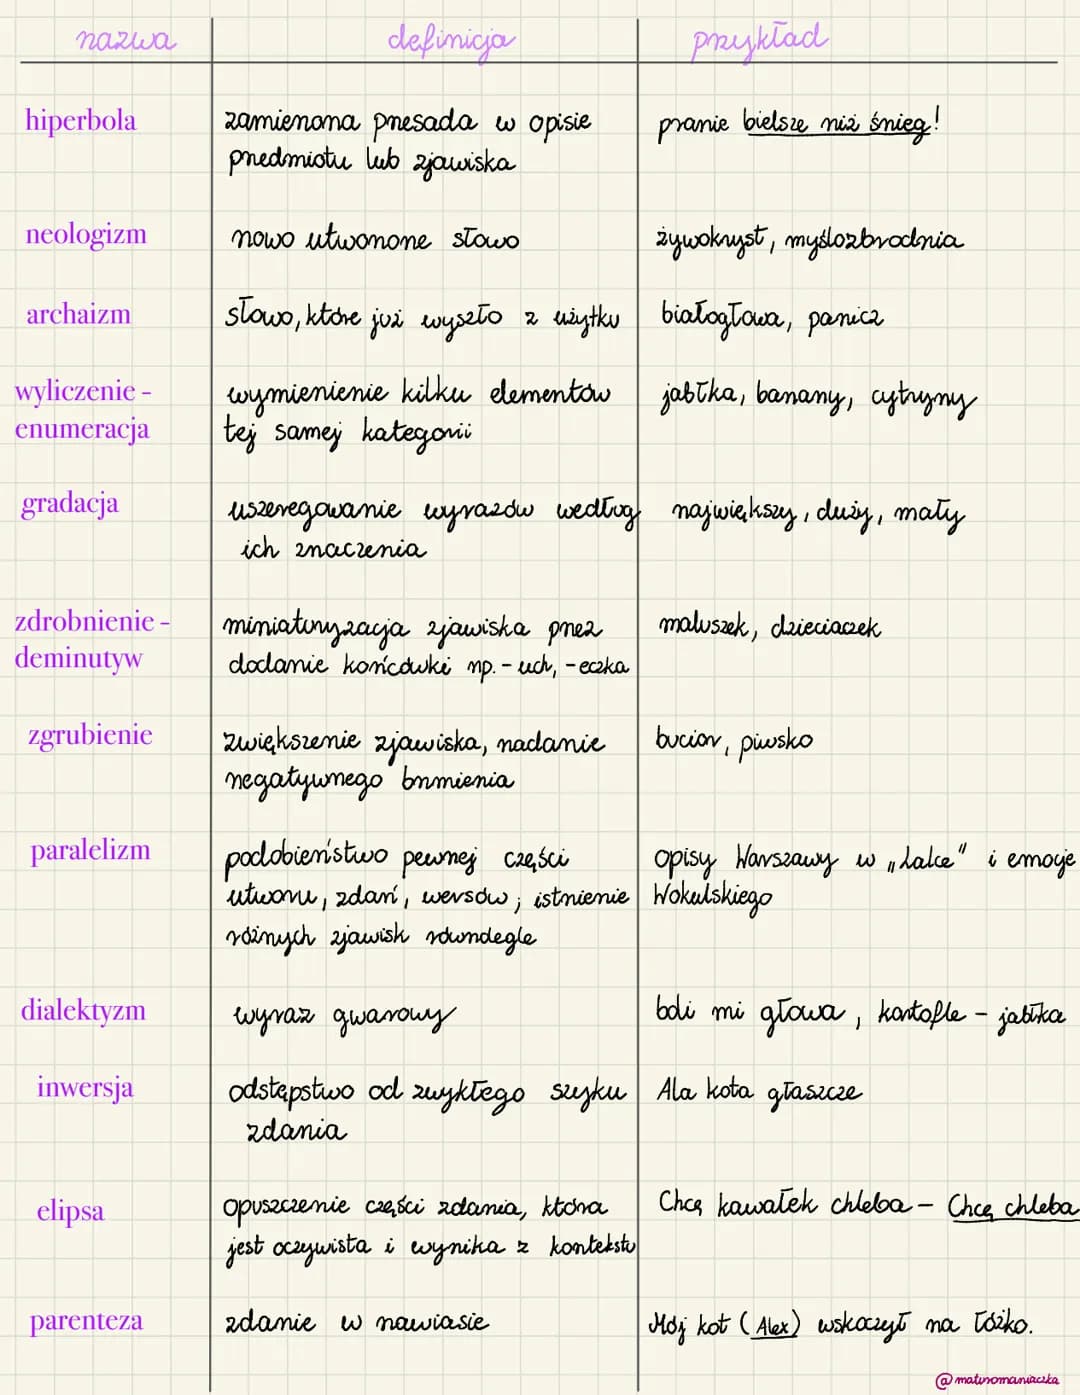 nazwa definicja przykład
hiperbola zamierzona przesada w opisie pranie bielsze niż śnieg!
przedmiotu lub zjawiska
neologizm nowo utworzone słowo żywokryst, myślozbrodnia
archaizm słowo, które już wyszło z użytku białogłowa, panicz
wyliczenie - wymienienie kilku elementów jabłka, banany, cytryny
enumeracja tej samej kategorii
gradacja uszeregowanie wyrazów według największy, duży, mały
ich znaczenia
zdrobnienie - miniaturyzacja zjawiska przez maluszek, dzieciaczek
deminutyw dodanie końcówki np. - uch, - eczka
zgrubienie zwiększenie zjawiska, nadanie bucior, piwsko
negatywnego brzmienia
paralelizm podobieństwo pewnej części opisy Warszawy w „Lalce" i emocje
utworu, zdań, wersów; istnienie Wokulskiego
różnych zjawisk równolegle
dialektyzm wyraz gwarowy boli mi głowa, kartofle - jabłka
inwersja odstępstwo od zwykłego szyku Ala kota głaszcze
zdania
elipsa opuszczenie części zdania, która Chcę kawałek chleba - Chcę chleba
jest oczywista i wynika z kontekstu
parenteza zdanie w nawiasie Mój kot (Alex) wskoczył na łóżko.
@maturomaniaczka